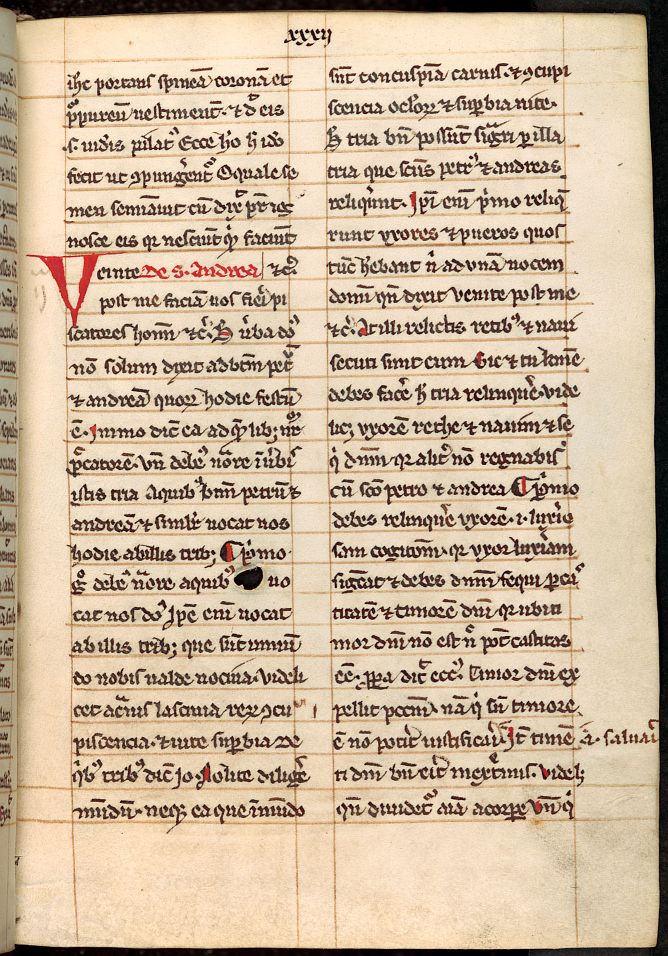 xxxij
ihc portans spineā coronā et
p̄pureū uestimentū ⁊ d̄ eis
s. iudeis pilatꝰ Ecce hō h ido
fecit ut ꝯpungerentᷣ O quale se
men seminauit cū dixᷣ pr̄ ig
nosce eis qr nesciūt qͥd faciūt
Venite De s. Andrea ⁊ cͥ
post me faciam uos fieri pi
scatores hom̄ ⁊cͥ. h uerba dn̄s
nō solum dixit ad bt̄m petrū
⁊ andreā quoꝝ hodie festū
ē. Immo dic̄ ea ad quēlibꝫ nr̄m
peccatorē. Vn̄ debemꝰ notare in uerbis
istis tria A quibꝰ btm̄ petrū ⁊
andreā ⁊ similiter uocat nos
hodie ab illis tribꝫ ¶ Primo
gͦ debemꝰ notare a quibꝰ uo
cat nos dn̄s Ipse enī uocat
ab illis tribꝫ que sūt in mū
do nobis ualde nociua. videli
cet a carnis lasciuia rerum ꝯcu
piscencia. ⁊ uite superbia De
qͥbꝰ tribꝰ dic̄ Jo. Nolite diligere
mūdū. neqꝫ ea que in mūdo
sūt concupīa carnis. ⁊ ꝯcupi
scencia oculorꝝ ⁊ supbia uite.
h tria bn̄ possūt sigͣri per illa
tria que scūs petrꝰ ⁊ andreas
reliquerūt. Ipsi enī primo reliqͥ
runt uxores ⁊ pueros quos
tūc hebant uel ad unā uocem
domini qn̄ dixit uenite post me
⁊cͥ. At illi relictis retibꝰ ⁊ naui
secuti sunt eum Sic ⁊ tu homē
debes facere h tria relinquere. vide
licꝫ uxorē rethe ⁊ nauim ⁊ se
qͥ dnm̄ qr alit̄ nō regnabis
cū sc̄o petro ⁊ andrea ¶ Primo
debes relinquere uxorē. i. luxurio
sam cogitom̄. qr uxor luxuriam
sigͣcat ⁊ debes dnm̄ sequi per cas
titatē ⁊ timorē dn̄i qr ubi ti
mor dn̄i nō est nō pōt castitas
eē. ꝓpterea dicͥ ecc̄s. Timor dn̄i ex
pellit peccm̄. nā qͥ sine timore
ē nō poterit iustificari. Itē timē ā. saluari
ti dnm̄ bn̄ erit in extremis. Videlꝫ
qn̄ diuidetᷣ aīa a corpe Vn̄ qͥ